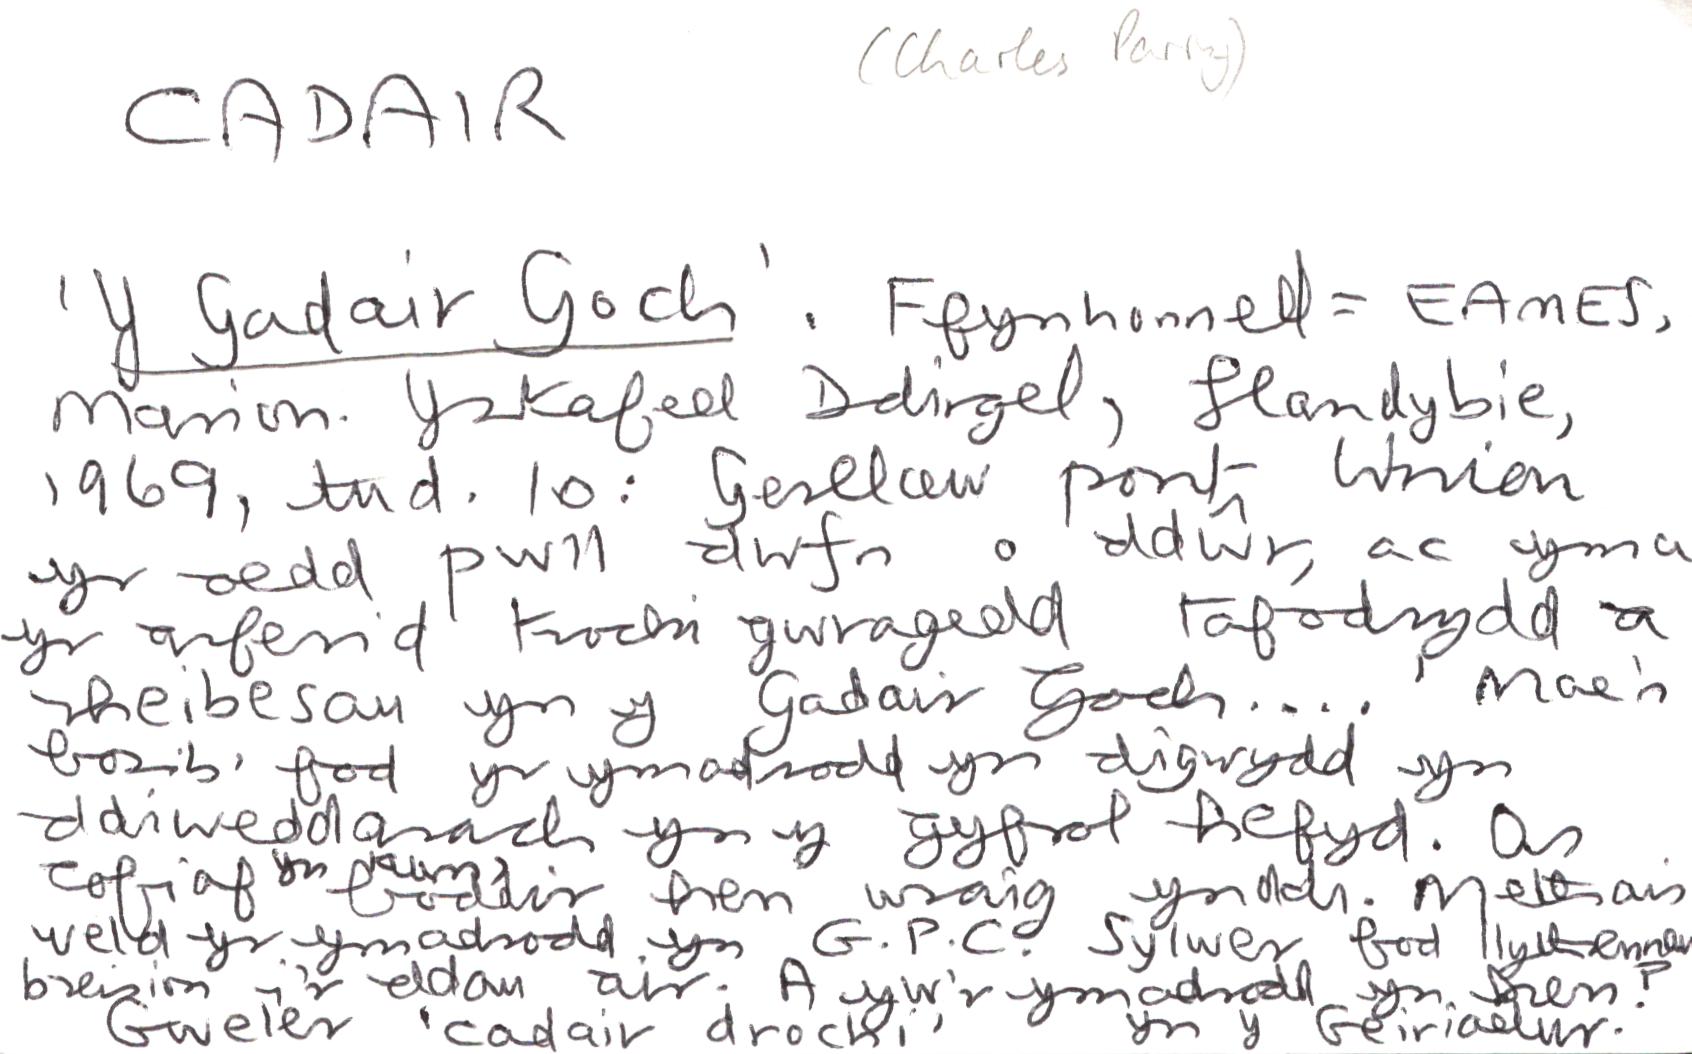 (Charles Parry)
CADAIR
'Y Gadair Goch'. Ffynhonnell = EAMES,
Marion. Ystafell Ddirgel, Llandybie,
1969, tud. 10: Gerllaw pont yr Wnion
yr oedd pwll dwfn o ddŵr, ac yma
yr arferid trochi gwragedd tafodrydd a
rheibesau yn y Gadair Goch....' Mae'n
bosib' fod yr ymadrodd yn digwydd yn
ddiweddarach yn y gyfrol hefyd. Os
cofiaf yn iawn, boddir hen wraig ynddi. Methais
weld yr ymadrodd yn G.P.C. Sylwer fod llythrennau
breision i'r ddau air. A yw'r ymadrodd yn hen?
Gweler 'cadair drochi' yn y Geiriadur.